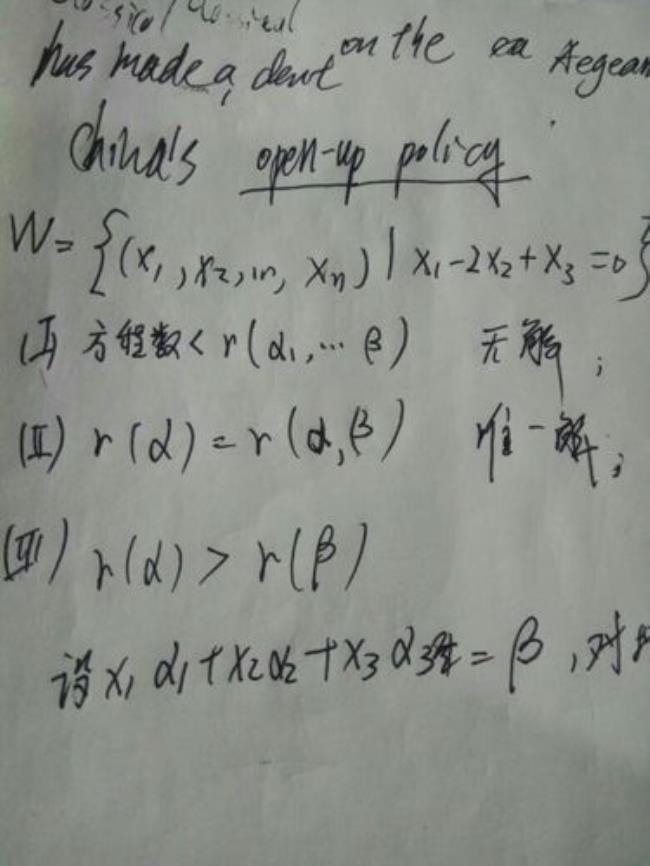 Classical
has made a dent on the ea Aegean
China's open-up policy
W = {(x₁, x₂, ..., xₙ) | x₁ - 2x₂ + x₃ = 0}
(I) 方程数 < r(α₁, ... β) 无解;
(II) r(α) = r(α, β) 唯一解;
(III) r(α) > r(β)
设 x₁α₁ + x₂α₂ + x₃α₃ = β, 对